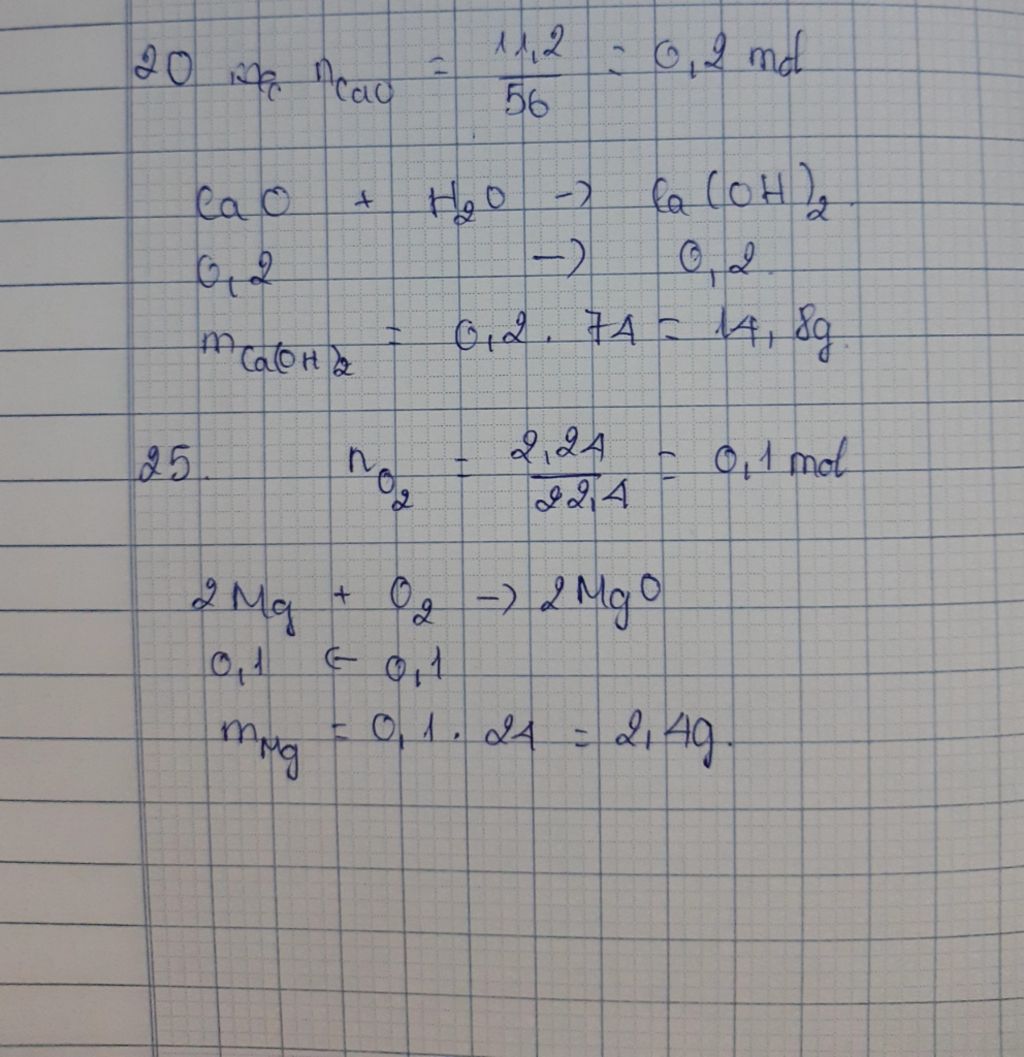 20 n_CaO = 11,2/56 = 0,2 mol
CaO + H₂O -> Ca(OH)₂.
0,2 -> 0,2.
m_Ca(OH)₂ = 0,2 . 74 = 14,8g.
25. n_O₂ = 2,24/22,4 = 0,1 mol
2Mg + O₂ -> 2MgO
0,1 <- 0,1
m_Mg = 0,1 . 24 = 2,4g.